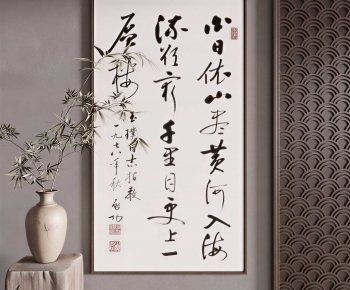 白日依山盡黄河入海
流欲窮千里目更上一
層樓
同志指教
一九七八年秋 启功